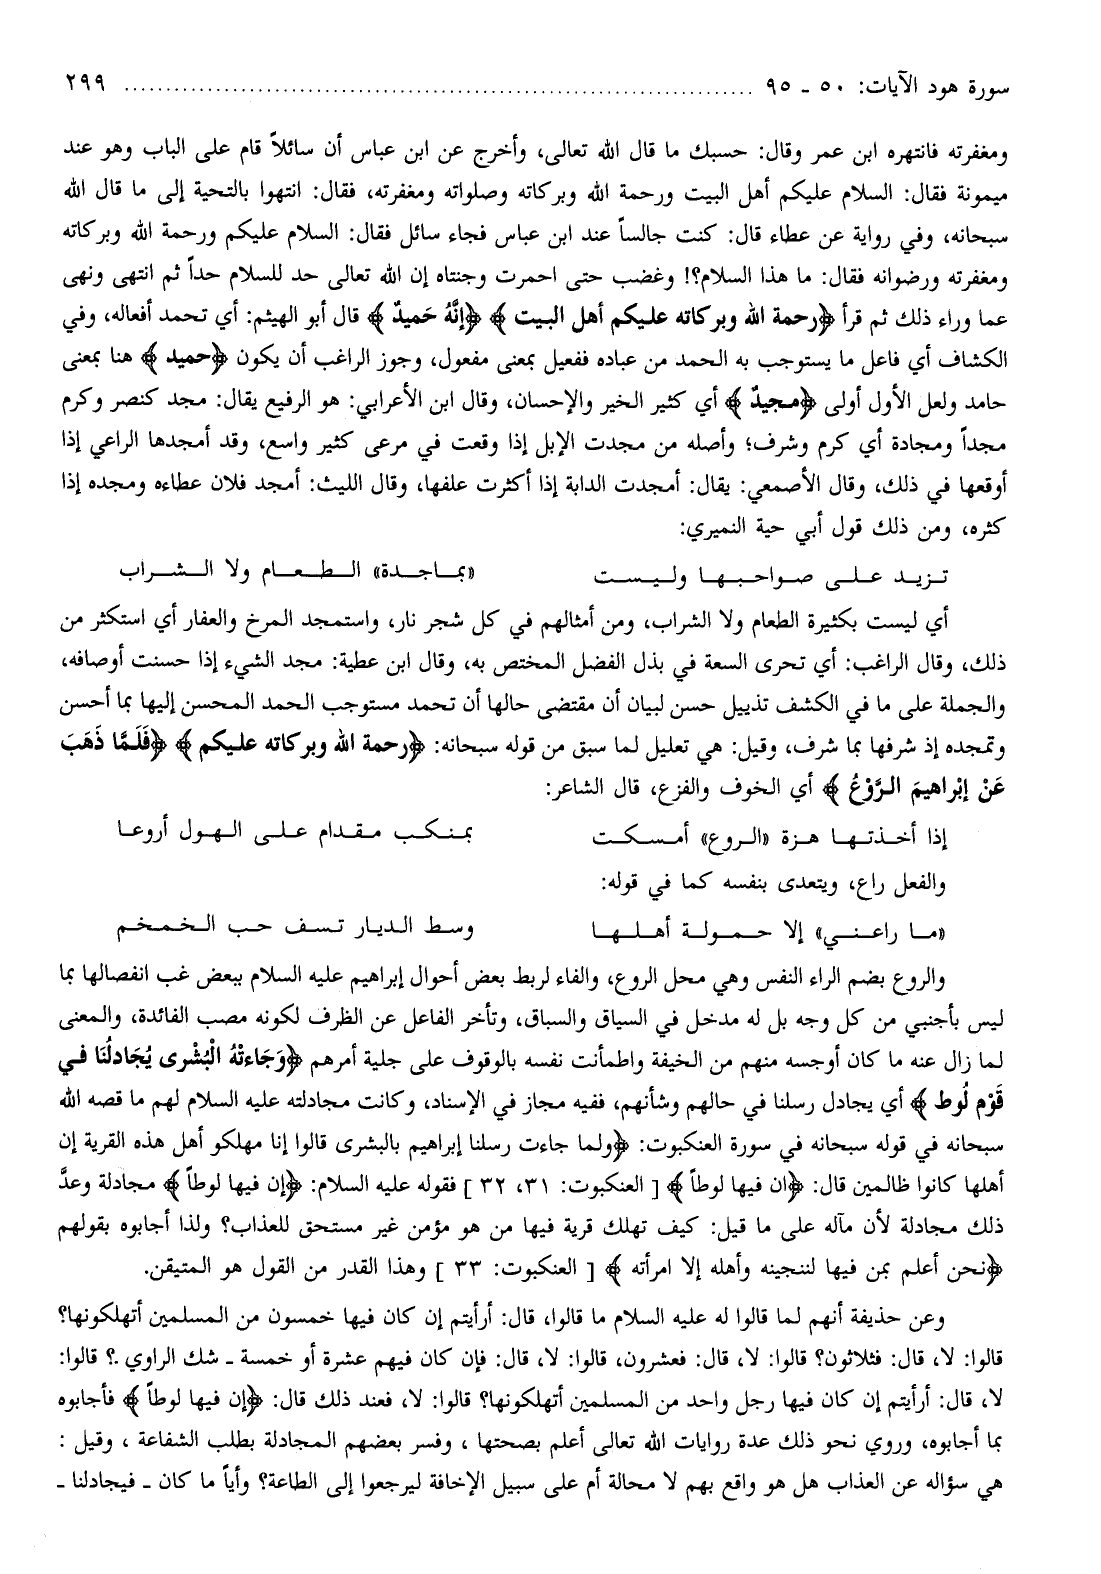 سورة هود الآيات: ٥٠ ـ ٩٥ ........................................ ٢٩٩
ومغفرته فانتهره ابن عمر وقال: حسبك ما قال الله تعالى، وأخرج عن ابن عباس أن سائلاً قام على الباب وهو عند
ميمونة فقال: السلام عليكم أهل البيت ورحمة الله وبركاته وصلواته ومغفرته، فقال: انتهوا بالتحية إلى ما قال الله
سبحانه، وفي رواية عن عطاء قال: كنت جالساً عند ابن عباس فجاء سائل فقال: السلام عليكم ورحمة الله وبركاته
ومغفرته ورضوانه فقال: ما هذا السلام؟! وغضب حتى احمرت وجنتاه إن الله تعالى حد للسلام حداً ثم انتهى ونهى
عما وراء ذلك ثم قرأ ﴿رحمة الله وبركاته عليكم أهل البيت﴾ ﴿إنَّهُ حَميدٌ﴾ قال أبو الهيثم: أي تحمد أفعاله، وفي
الكشاف أي فاعل ما يستوجب به الحمد من عباده ففعيل بمعنى مفعول، وجوز الراغب أن يكون ﴿حميد﴾ هنا بمعنى
حامد ولعل الأول أولى ﴿مجيدٌ﴾ أي كثير الخير والإحسان، وقال ابن الأعرابي: هو الرفيع يقال: مجد كنصر وكرم
مجداً ومجادة أي كرم وشرف؛ وأصله من مجدت الإبل إذا وقعت في مرعى كثير واسع، وقد أمجدها الراعي إذا
أوقعها في ذلك، وقال الأصمعي: يقال: أمجدت الدابة إذا أكثرت علفها، وقال الليث: أمجد فلان عطاءه ومجده إذا
كثره، ومن ذلك قول أبي حية النميري:
تزيد على صواحبها وليست «بماجدة» الطعام ولا الشراب
أي ليست بكثيرة الطعام ولا الشراب، ومن أمثالهم في كل شجر نار، واستمجد المرخ والعفار أي استكثر من
ذلك، وقال الراغب: أي تحرى السعة في بذل الفضل المختص به، وقال ابن عطية: مجد الشيء إذا حسنت أوصافه،
والجملة على ما في الكشف تذييل حسن لبيان أن مقتضى حالها أن تحمد مستوجب الحمد المحسن إليها بما أحسن
وتمجده إذ شرفها بما شرف، وقيل: هي تعليل لما سبق من قوله سبحانه: ﴿رحمة الله وبركاته عليكم﴾ ﴿فَلَمَّا ذَهَبَ
عَنْ إبْراهيمَ الرَّوْعُ﴾ أي الخوف والفزع، قال الشاعر:
إذا أخذتها هزة «الروع» أمسكت بمنكب مقدام على الهول أروعا
والفعل راع، ويتعدى بنفسه كما في قوله:
«ما راعني» إلا حمولة أهلها وسط الديار تسف حب الخمخم
والروع بضم الراء النفس وهي محل الروع، والفاء لربط بعض أحوال إبراهيم عليه السلام ببعض غب انفصالها بما
ليس بأجنبي من كل وجه بل له مدخل في السياق والسباق، وتأخر الفاعل عن الظرف لكونه مصب الفائدة، والمعنى
لما زال عنه ما كان أوجسه منهم من الخيفة واطمأنت نفسه بالوقوف على جلية أمرهم ﴿وَجَاءتْهُ الْبُشْرى يُجَادلُنَا في
قَوْم لُوط﴾ أي يجادل رسلنا في حالهم وشأنهم، ففيه مجاز في الإسناد، وكانت مجادلته عليه السلام لهم ما قصه الله
سبحانه في قوله سبحانه في سورة العنكبوت: ﴿ولما جاءت رسلنا إبراهيم بالبشرى قالوا إنا مهلكو أهل هذه القرية إن
أهلها كانوا ظالمين قال: ﴿ان فيها لوطاً﴾ [ العنكبوت: ٣١، ٣٢ ] فقوله عليه السلام: ﴿إن فيها لوطاً﴾ مجادلة وعدَّ
ذلك مجادلة لأن مآله على ما قيل: كيف تهلك قرية فيها من هو مؤمن غير مستحق للعذاب؟ ولذا أجابوه بقولهم
﴿نحن أعلم بمن فيها لننجينه وأهله إلا امرأته﴾ [ العنكبوت: ٣٣ ] وهذا القدر من القول هو المتيقن.
وعن حذيفة أنهم لما قالوا له عليه السلام ما قالوا، قال: أرأيتم إن كان فيها خمسون من المسلمين أتهلكونها؟
قالوا: لا، قال: فثلاثون؟ قالوا: لا، قال: فعشرون، قالوا: لا، قال: فإن كان فيهم عشرة أو خمسة ـ شك الراوي ـ؟ قالوا:
لا، قال: أرأيتم إن كان فيها رجل واحد من المسلمين أتهلكونها؟ قالوا: لا، فعند ذلك قال: ﴿إن فيها لوطاً﴾ فأجابوه
بما أجابوه، وروي نحو ذلك عدة روايات الله تعالى أعلم بصحتها ، وفسر بعضهم المجادلة بطلب الشفاعة ، وقيل :
هي سؤاله عن العذاب هل هو واقع بهم لا محالة أم على سبيل الإخافة ليرجعوا إلى الطاعة؟ وأياً ما كان ـ فيجادلنا ـ